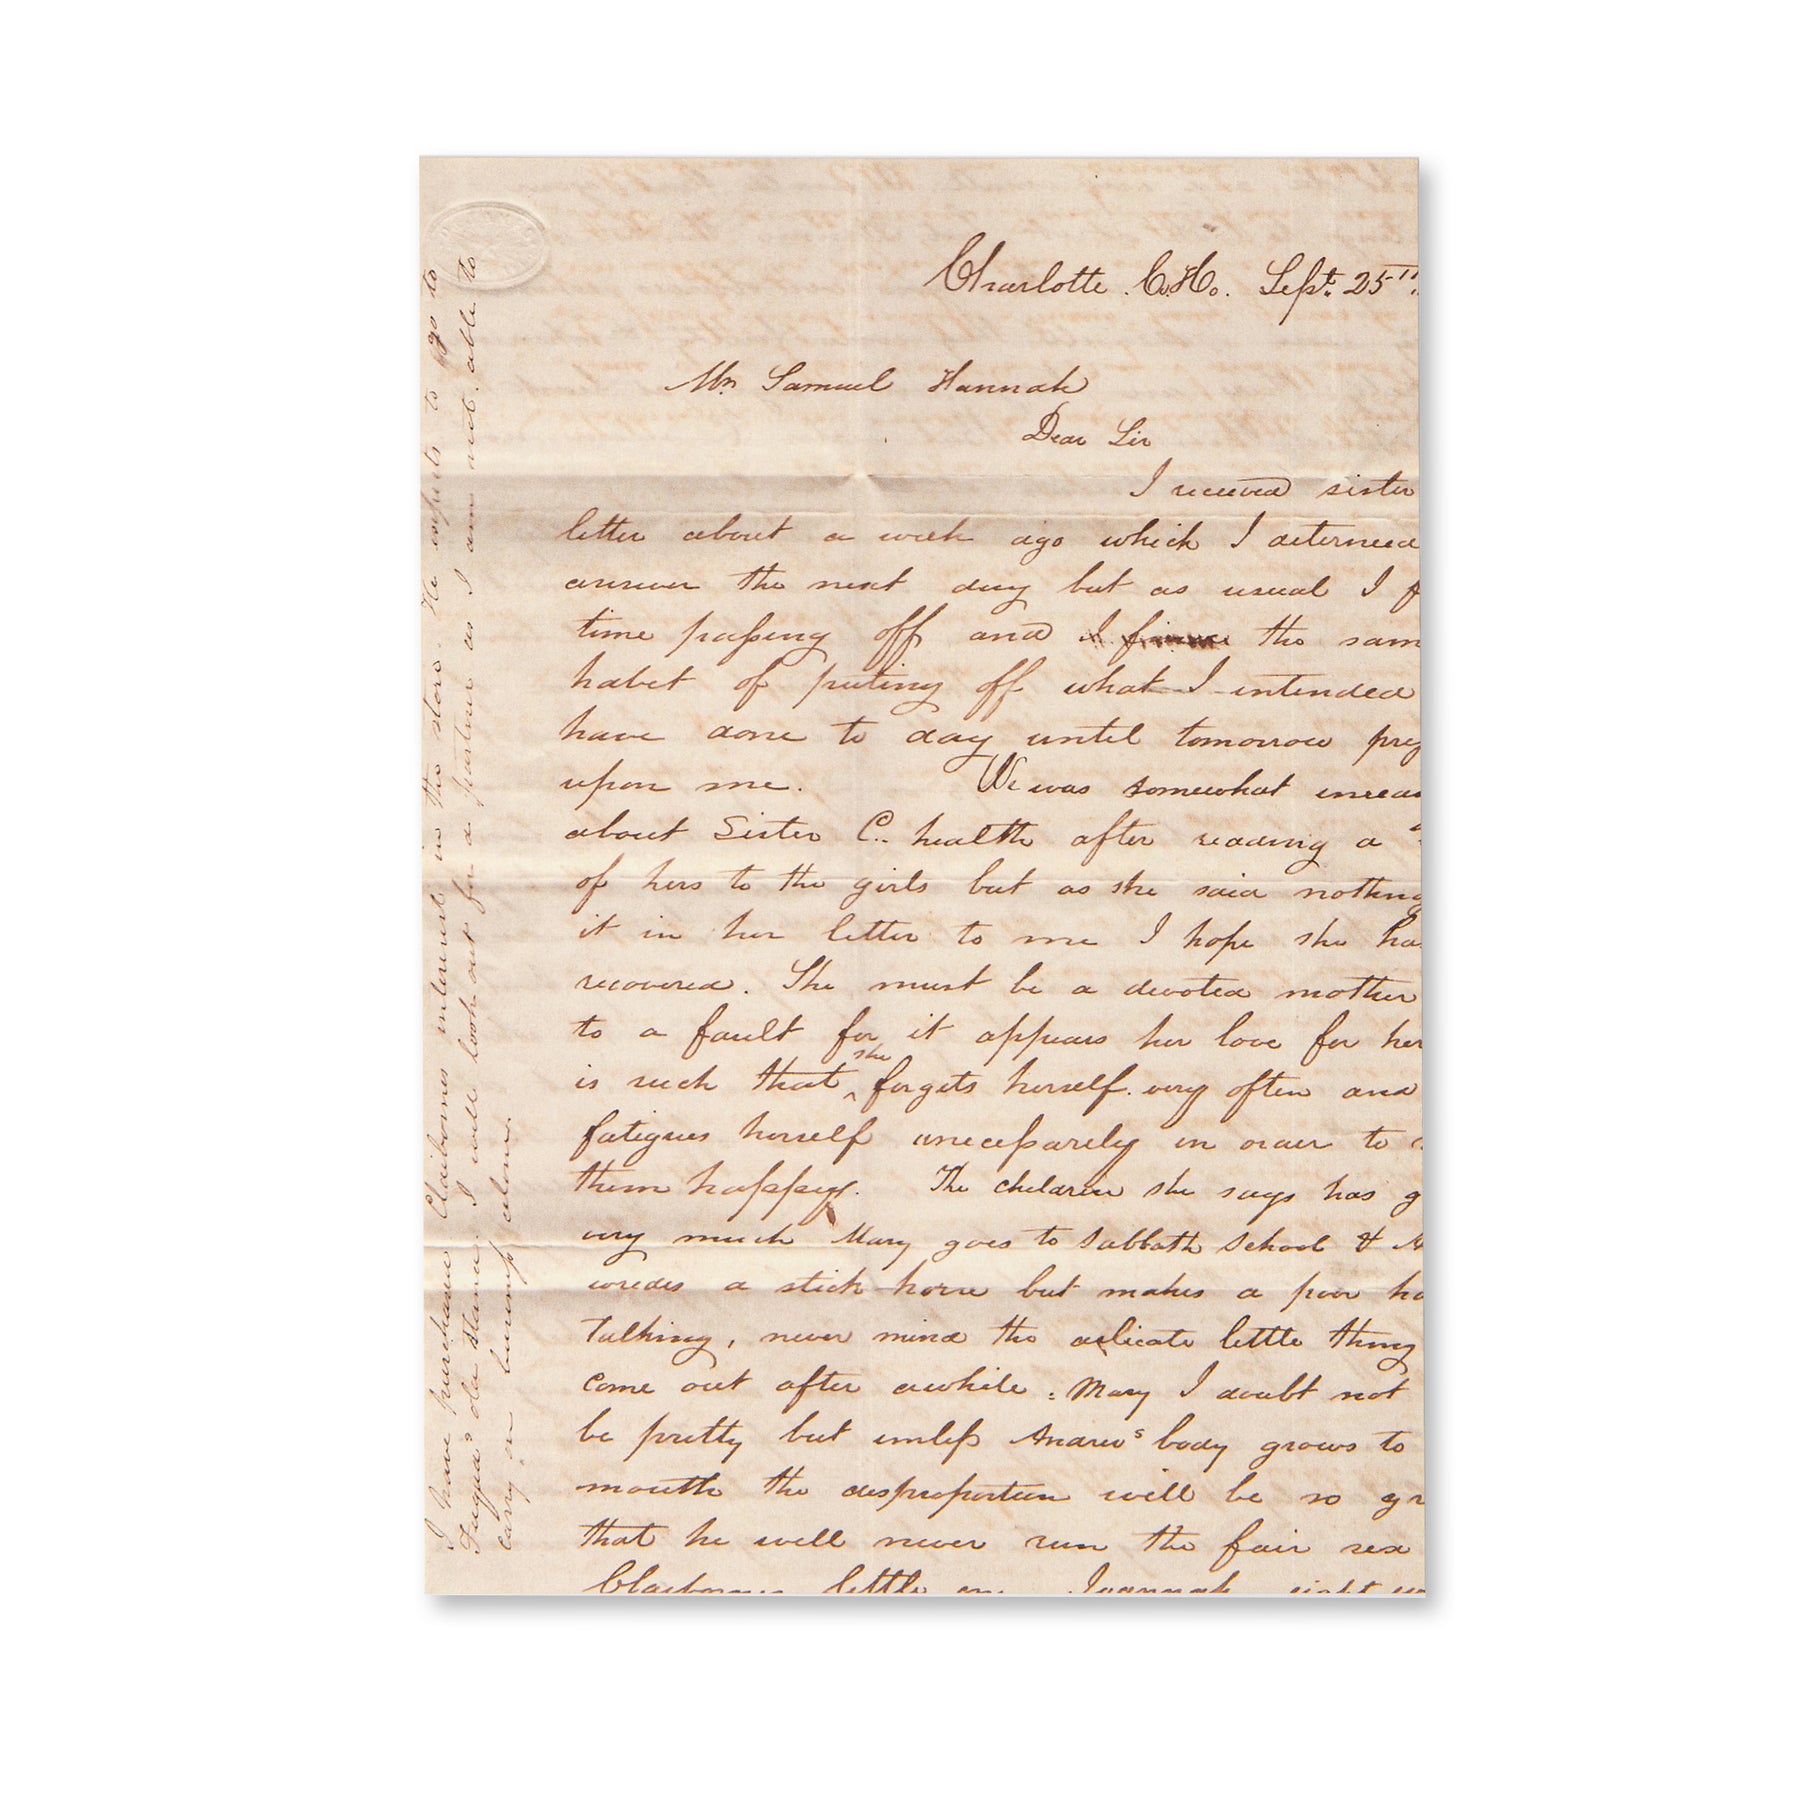 Charlotte C. Ho. Sept. 25th
Mr. Samuel Hannah
Dear Sir
I received sister
letter about a week ago which I determed
answer the next day but as usual I f
time passing off and I the sam
habet of puting off what I intended
have done to day until tomorrow prey
upon me. We was somewhat uneas
about Sister C.. health after reading a
of hers to the girls but as she said nothing
it in her letter to me I hope she ha
recovered. She must be a devoted mother
to a fault for it appears her love for her
is such that she forgets herself very often and
fatigues herself unecessarely in order to
them happy. The children she says has g
very much Mary goes to Sabbath School & A
wredes a stick horse but makes a poor ha
Talking, never mind the delicate little thing
come out after awhile. Mary I doubt not
be pretty but unless Andrews body grows to
mouth the desproportion will be so gr
that he will never run the fair sex
Claibornes little one Joannah eight
I have purchased Claibornes interest in the store. He expects to go to
Fuqua's old stand. I will look out for a partner as I am not able to
carry on business alone.